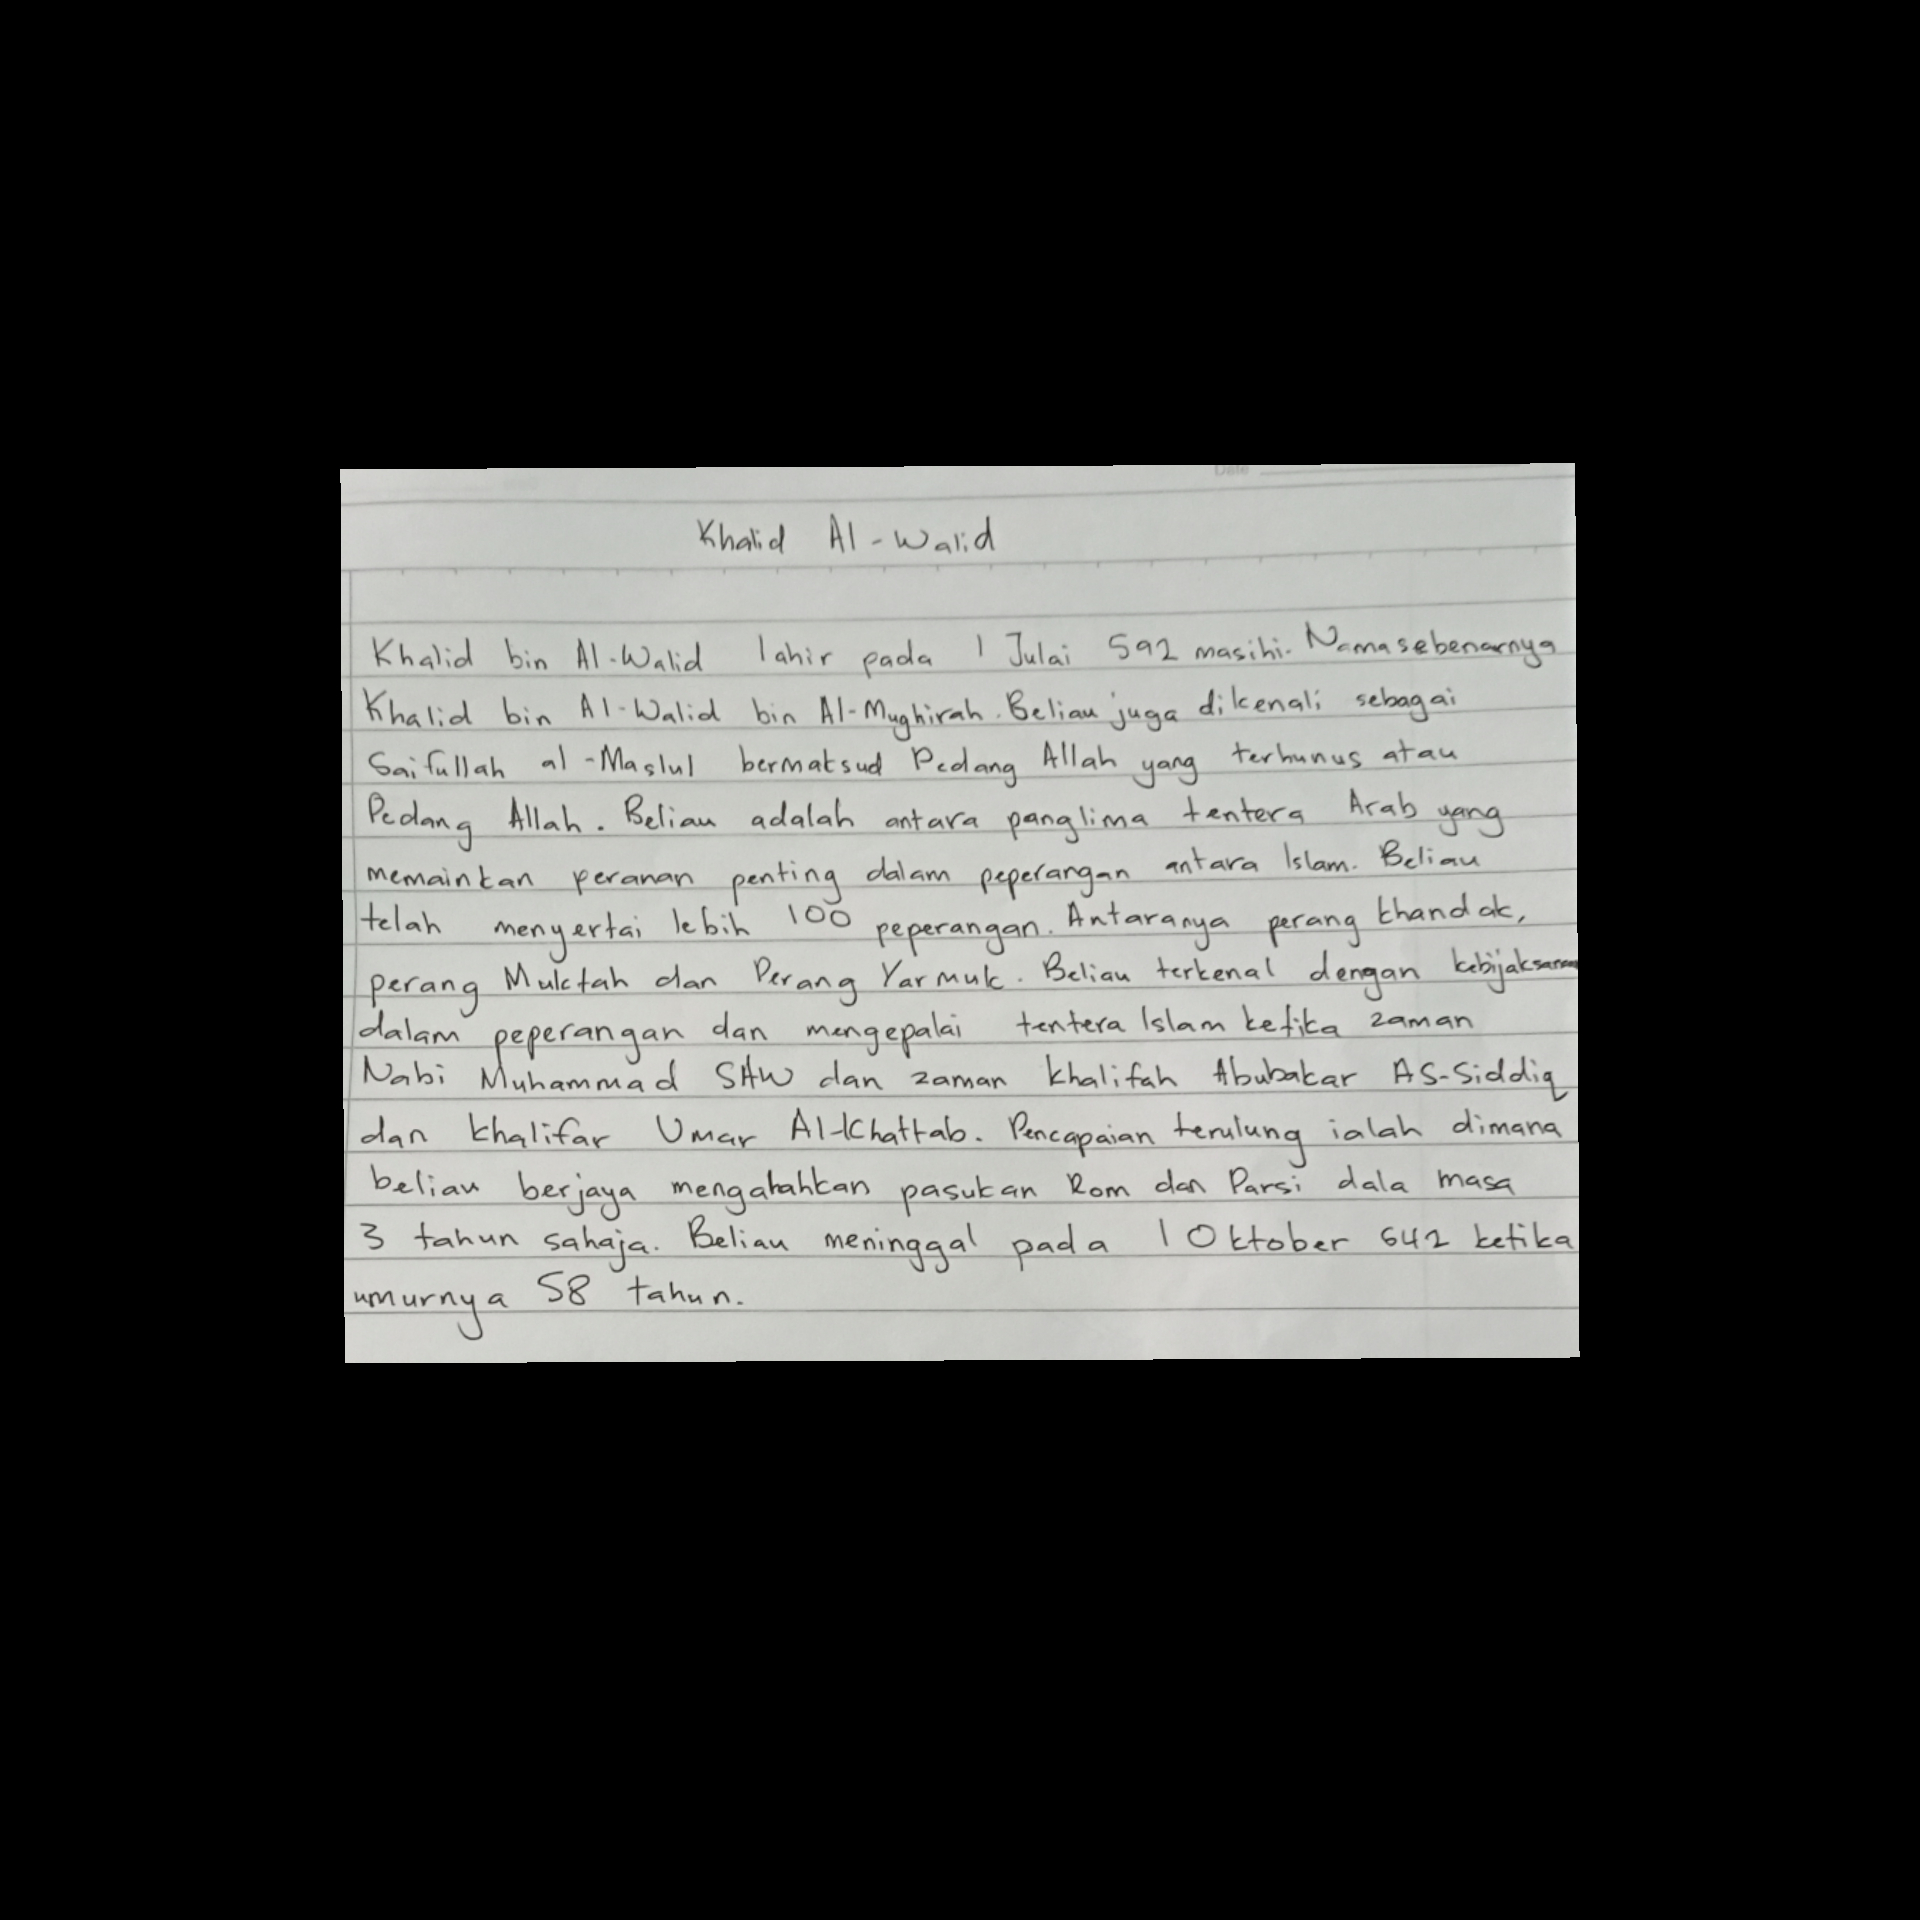 Date
Khalid Al-Walid
Khalid bin Al-Walid lahir pada 1 Julai 592 masihi. Nama sebenarnya
Khalid bin Al-Walid bin Al-Mughirah. Beliau juga dikenali sebagai
Saifullah al-Maslul bermaksud Pedang Allah yang terhunus atau
Pedang Allah. Beliau adalah antara panglima tentera Arab yang
memainkan peranan penting dalam peperangan antara Islam. Beliau
telah menyertai lebih 100 peperangan. Antaranya perang khandak,
perang Muktah dan Perang Yarmuk. Beliau terkenal dengan kebijaksanaan
dalam peperangan dan mengepalai tentera Islam ketika zaman
Nabi Muhammad SAW dan zaman khalifah Abubakar AS-Siddiq
dan khalifar Umar Al-Khattab. Pencapaian terulung ialah dimana
beliau berjaya mengalahkan pasukan Rom dan Parsi dala masa
3 tahun sahaja. Beliau meninggal pada 1 Oktober 642 ketika
umurnya 58 tahun.